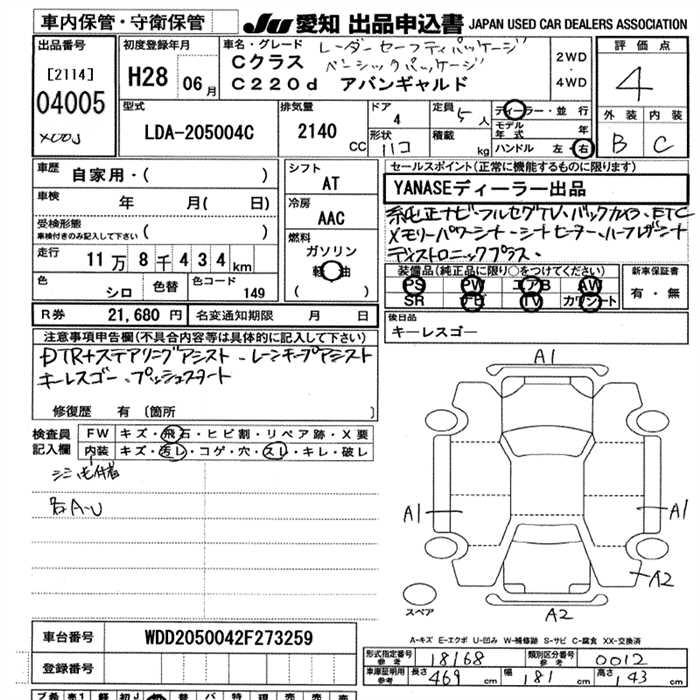 車内保管・守衛保管
JU 愛知 出品申込書 JAPAN USED CAR DEALERS ASSOCIATION
出品番号
[2114]
04005
初度登録年月
H28 06月
車名・グレード レーダーセーフティパッケージ
Cクラス ベーシックパッケージ
C220d アバンギャルド
2WD
・
4WD
評価点
4
外装 内装
B C
型式
LDA-205004C
排気量
2140 CC
ドア
4
形状
ハコ
定員 5人
積載 kg
ディーラー・並行
モデル年式 年
ハンドル 左・右
車歴 自家用・( )
車検 年 月( 日)
受検形態
車検付きのみ記入して下さい ( )
走行 11万8千434km
色 シロ 色替 色コード 149
シフト
AT
冷房
AAC
燃料
ガソリン
軽油
( )
セールスポイント(正常に機能するものに限ります)
YANASEディーラー出品
純正ナビ・フルセグTV・バックカメラ・ETC
メモリーパワーシート・シートヒーター・ハーフレザーシート
ディストロニックプラス・
装備品(純正品に限り○をつけてください)
PS PW エアB AW
SR ナビ TV カワシート
新車保証書
有・無
R券 21,680円 名変通知期限 月 日
後日品
キーレスゴー
注意事項申告欄(不具合内容等は具体的に記入して下さい)
DTR+ステアリングアシスト・レーンキープアシスト
キーレスゴー・プッシュスタート
修復歴 有 〔箇所 〕
検査員記入欄
FW キズ・飛石・ヒビ割・リペア跡・X要
内装 キズ・汚レ・コゲ・穴・スレ・キレ・破レ
A1
A1
A1
A2
A2
スペア
A-キズ E-エクボ U-凹み W-補修跡 S-サビ C-腐食 XX-交換済
車台番号 WDD2050042F273259
登録番号
形式指定番号 参考 18168 類別区分番号 参考 0012
車庫証明用 参考 長さ 469cm 幅 181cm 高さ 143cm